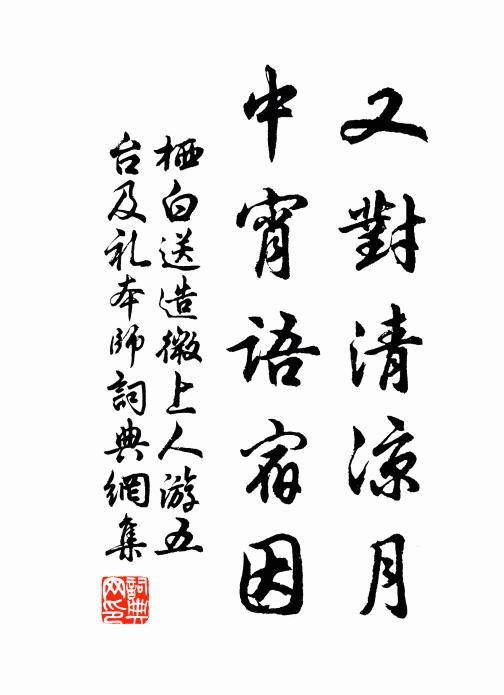 又對清涼月
中宵語宿因
栖白送造微上人游五
台及礼本師詞典網集
詞典
网印